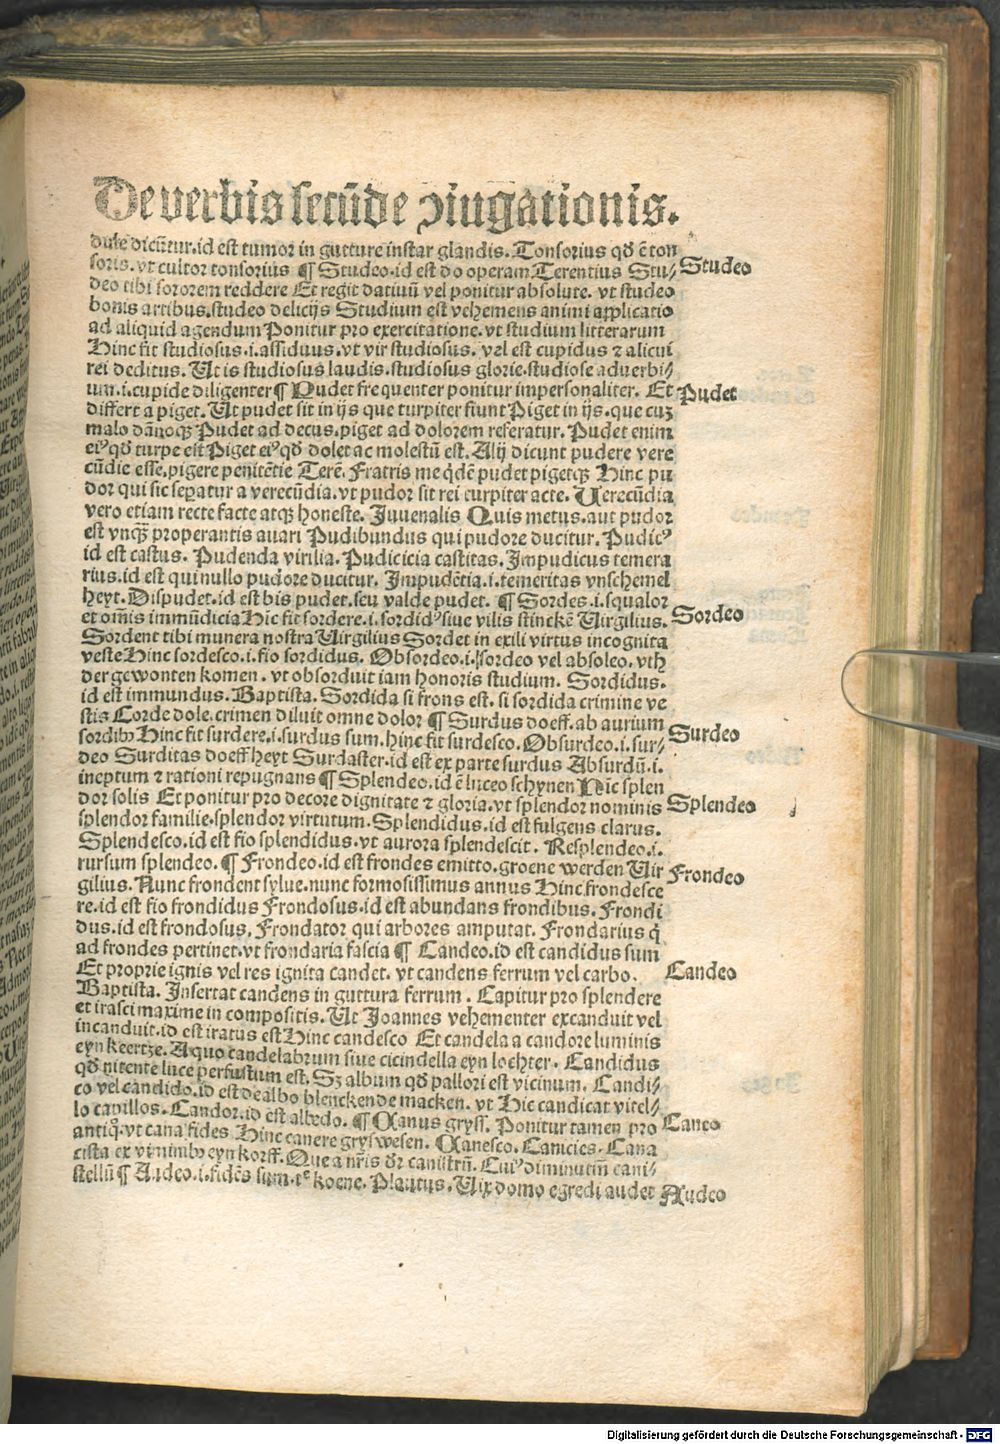 De verbis secūde ↄiugationis.
dule dicūtur.id est tumor in gutture instar glandis. Tonsorius qđ ē ton
soris.vt cultor tonsorius ¶ Studeo.id est do operam Terentius Stu⸗ Studeo
deo tibi sororem reddere Et regit datiuū vel ponitur absolute. vt studeo
bonis artibus.studeo delicijs Studium est vehemens animi applicatio
ad aliquid agendum Ponitur pro exercitatione.vt studium litterarum
Hinc fit studiosus.i.assiduus.vt vir studiosus. vel est cupidus ⁊ alicui
rei deditus. Ut is studiosus laudis.studiosus glorie.studiose aduerbi⸗
um.i.cupide diligenter ¶ Pudet frequenter ponitur impersonaliter. Et Pudet
differt a piget. Ut pudet sit in ijs que turpiter fiunt Piget in ijs.que cuꝫ
malo dānoqꝫ Pudet ad decus.piget ad dolorem referatur. Pudet enim
eiꝰ qđ turpe est Piget eiꝰ qđ dolet ac molestū est. Alij dicunt pudere vere
cūdie esse.pigere penitētie Terē. Fratris me qdē pudet pigetqꝫ Hinc pu
dor qui sic seꝑatur a verecūdia.vt pudor sit rei turpiter acte. Uerecūdia
vero etiam recte facte atqꝫ honeste. Juuenalis Quis metus.aut pudor
est vnqꝫ̄ properantis auari Pudibundus qui pudore ducitur. Pudicꝰ
id est castus. Pudenda virilia. Pudicicia castitas. Impudicus temera
rius.id est qui nullo pudore ducitur. Impudētia.i.temeritas vnschemel
heyt. Dispudet.id est bis pudet.seu valde pudet. ¶ Sordes.i.squalor
et omīs immūdicia Hic fit sordere.i.sordidꝰ siue vilis stinckē Uirgilius. Sordeo
Sordent tibi munera nostra Uirgilius Sordet in exili virtus incognita
veste Hinc sordesco.i.fio sordidus. Obsordeo.i.sordeo vel absoleo.vth
der gewonten komen. vt obsorduit iam honoris studium. Sordidus.
id est immundus. Baptista. Sordida si frons est. si sordida crimine ve
stis Corde dole.crimen diluit omne dolor ¶ Surdus doeff.ab aurium
sordibꝫ Hinc fit surdere.i.surdus sum.hinc fit surdesco. Obsurdeo.i.sur⸗ Surdeo
deo Surditas doeffheyt Surdaster.id est ex parte surdus Absurdū.i.
ineptum ⁊ rationi repugnans ¶ Splendeo.id ē luceo schynen Hic splen
dor solis Et ponitur pro decore dignitate ⁊ gloria.vt splendor nominis Splendeo
splendor familie.splendor virtutum. Splendidus.id est fulgens clarus.
Splendesco.id est fio splendidus.vt aurora splendescit. Resplendeo.i.
rursum splendeo. ¶ Frondeo.id est frondes emitto.groene werden Uir Frondeo
gilius. Nunc frondent sylue.nunc formosissimus annus Hinc frondesce
re.id est fio frondidus Frondosus.id est abundans frondibus. Frondi
dus.id est frondosus. Frondator qui arbores amputat. Frondarius q̄
ad frondes pertinet.vt frondaria fascia ¶ Candeo.id est candidus sum
Et proprie ignis vel res ignita candet. vt candens ferrum vel carbo. Candeo
Baptista. Insertat candens in guttura ferrum. Capitur pro splendere
et irasci maxime in compositis. Ut Joannes vehementer excanduit vel
incanduit.id est iratus est Hinc candesco Et candela a candore luminis
eyn keertze. A quo candelabrum siue cicindella eyn lochter. Candidus
qđ nitente luce perfusum est. Sꝫ album qđ pallori est vicinum. Candi⸗
co vel candido.id est dealbo blenckende macken. vt Hic candicat vitel⸗
lo capillos. Candor.id est albedo. ¶ Canus gryss. Ponitur tamen pro Caneo
antiq̄.vt cana fides Hinc canere gryswesen. Canesco. Canicies. Cana
cista ex viminibꝫ eyn korff. Que a nr̄is dr̄ canistrū. Cuiꝰ diminutiū cani⸗
stellū ¶ Audeo.i.fidēs sum. koene. Plautus. Uix domo egredi audet Audeo
Digitalisierung gefördert durch die Deutsche Forschungsgemeinschaft - DFG